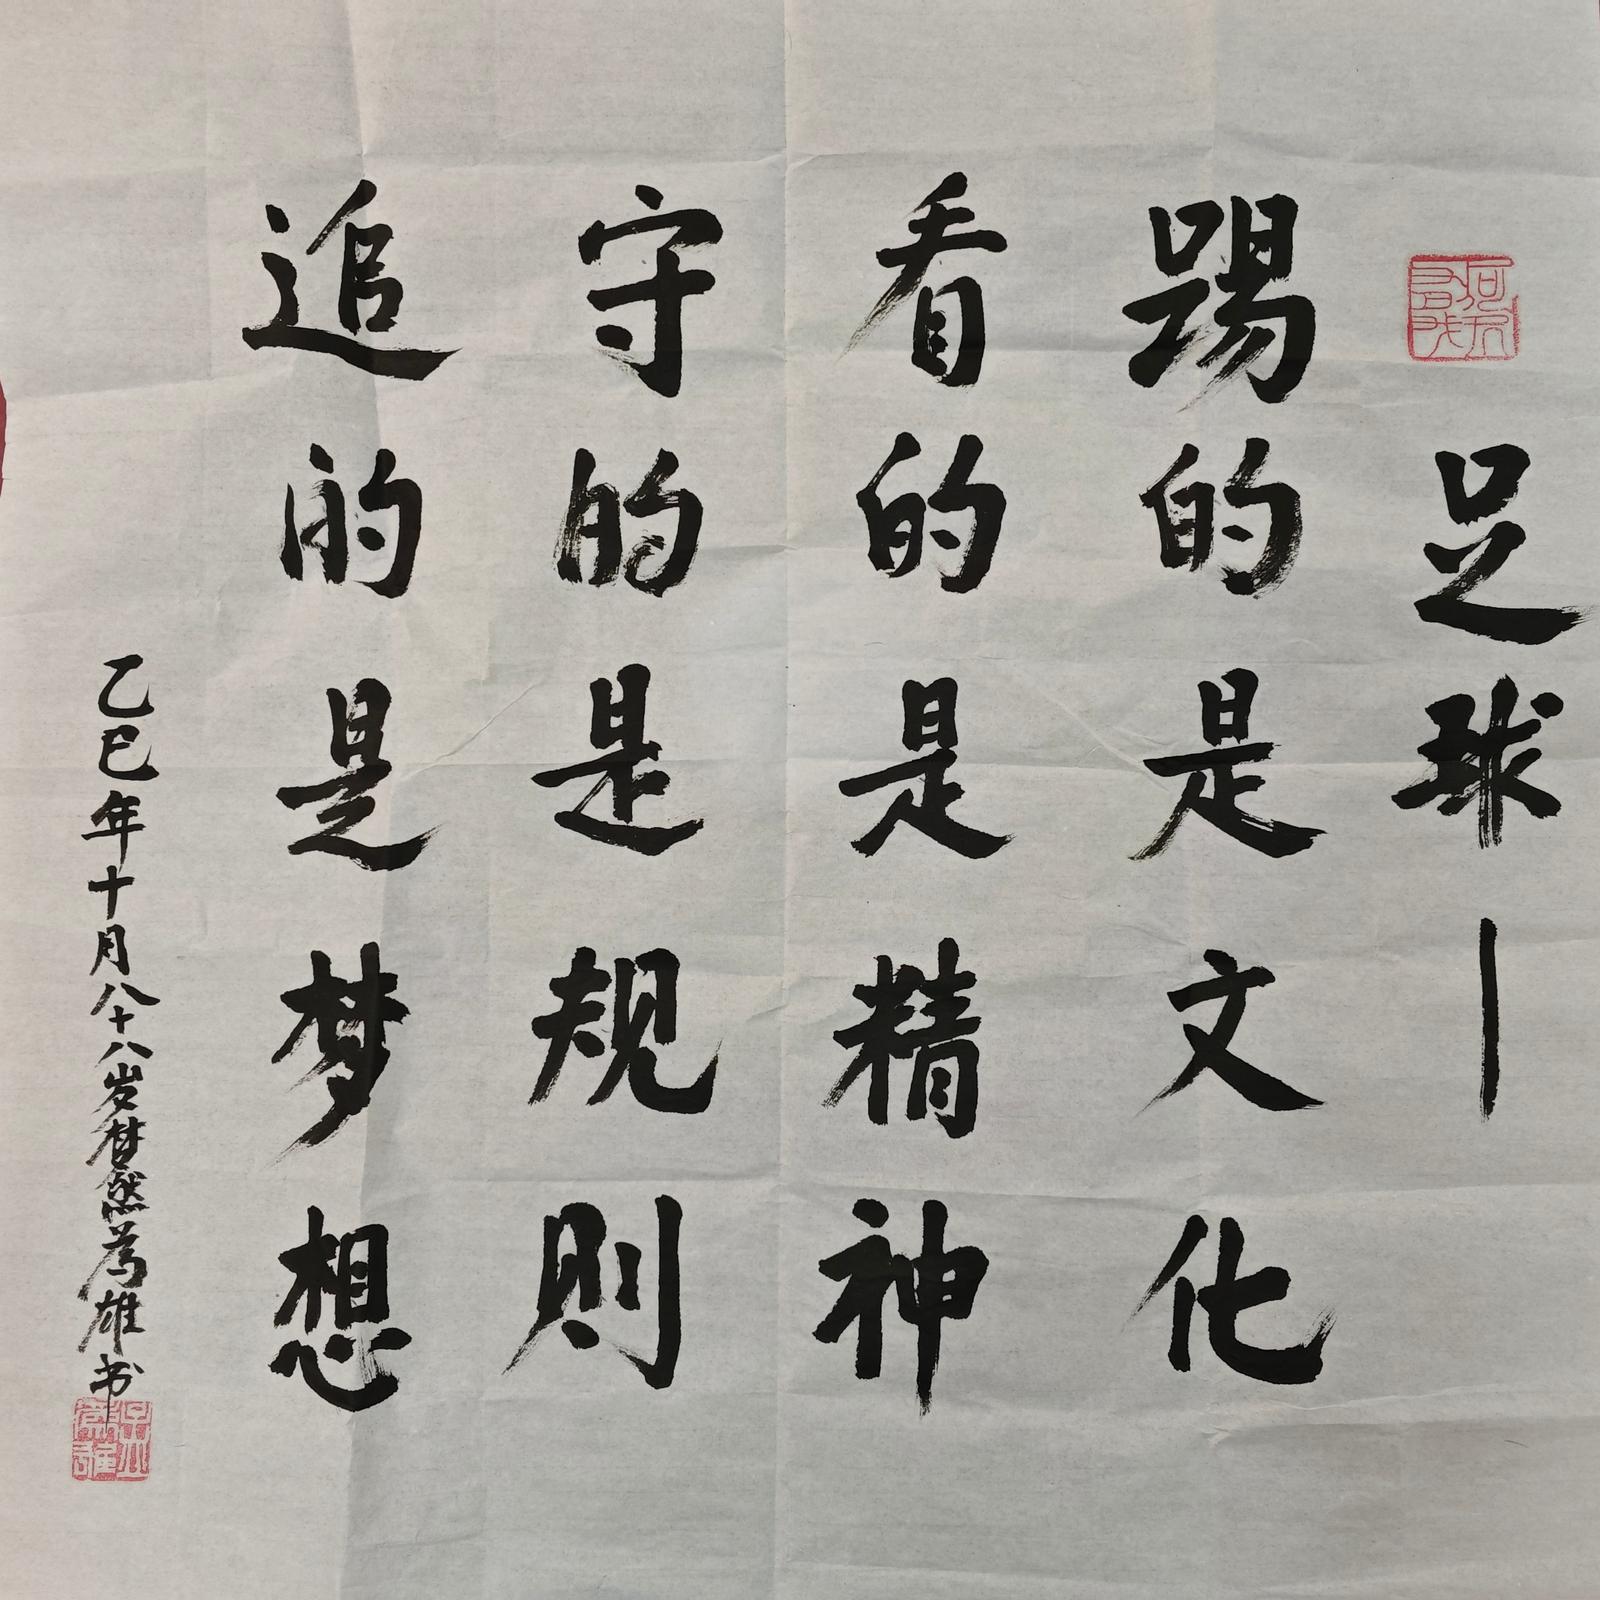 足球—
踢的是文化
看的是精神
守的是规则
追的是梦想
乙巳年十月八十八岁楚然为雄书